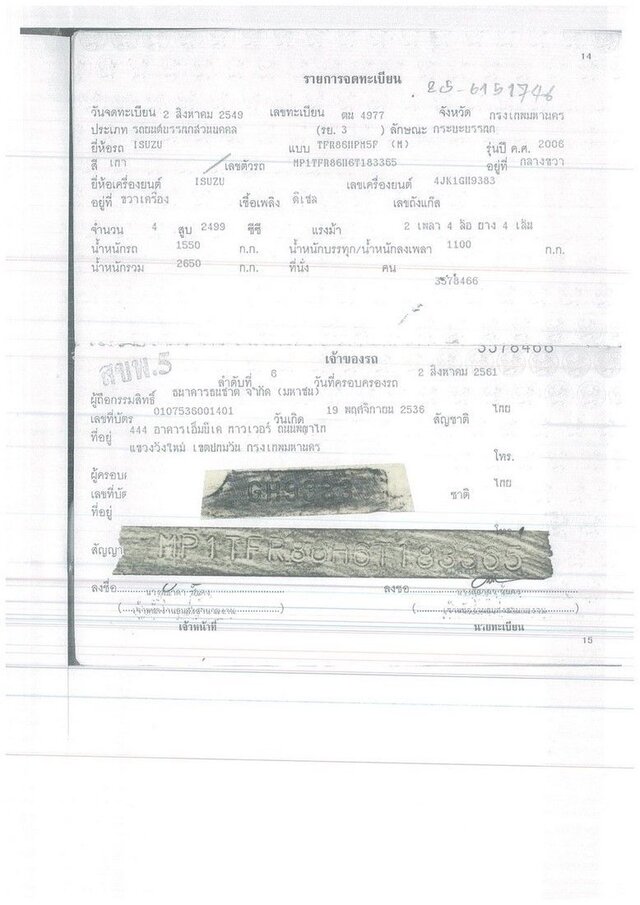 14
รายการจดทะเบียน
วันจดทะเบียน 2 สิงหาคม 2549 เลขทะเบียน ตม 4977 จังหวัด กรุงเทพมหานคร
ประเภท รถยนต์บรรทุกส่วนบุคคล (รย. 3 ) ลักษณะ กระบะบรรทุก
ยี่ห้อรถ ISUZU แบบ TFR86HPM5F (M) รุ่นปี ค.ศ. 2006
สี เทา เลขตัวรถ MP1TFR86H6T183365 อยู่ที่ กลางขวา
ยี่ห้อเครื่องยนต์ ISUZU เลขเครื่องยนต์ 4JK1GH9383
อยู่ที่ ขวาเครื่อง เชื้อเพลิง ดีเซล เลขถังแก๊ส
จำนวน 4 สูบ 2499 ซีซี แรงม้า 2 เพลา 4 ล้อ ยาง 4 เส้น
น้ำหนักรถ 1550 ก.ก. น้ำหนักบรรทุก/น้ำหนักลงเพลา 1100 ก.ก.
น้ำหนักรวม 2650 ก.ก. ที่นั่ง คน
3578466
3578466
เจ้าของรถ
สขพ.5
ลำดับที่ 6 วันที่ครอบครองรถ 2 สิงหาคม 2561
ผู้ถือกรรมสิทธิ์ ธนาคารธนชาต จำกัด (มหาชน)
เลขที่บัตร 0107536001401 วันเกิด 19 พฤศจิกายน 2536 สัญชาติ ไทย
ที่อยู่ 444 อาคารเอ็มบีเค ทาวเวอร์ ถนนพญาไท
แขวงวังใหม่ เขตปทุมวัน กรุงเทพมหานคร
โทร.
ผู้ครอบ
เลขที่บัต ชาติ ไทย
ที่อยู่
GH9383
สัญญา
MP1TFR86H6T183365
ลงชื่อ ลงชื่อ
เจ้าหน้าที่ นายทะเบียน
15